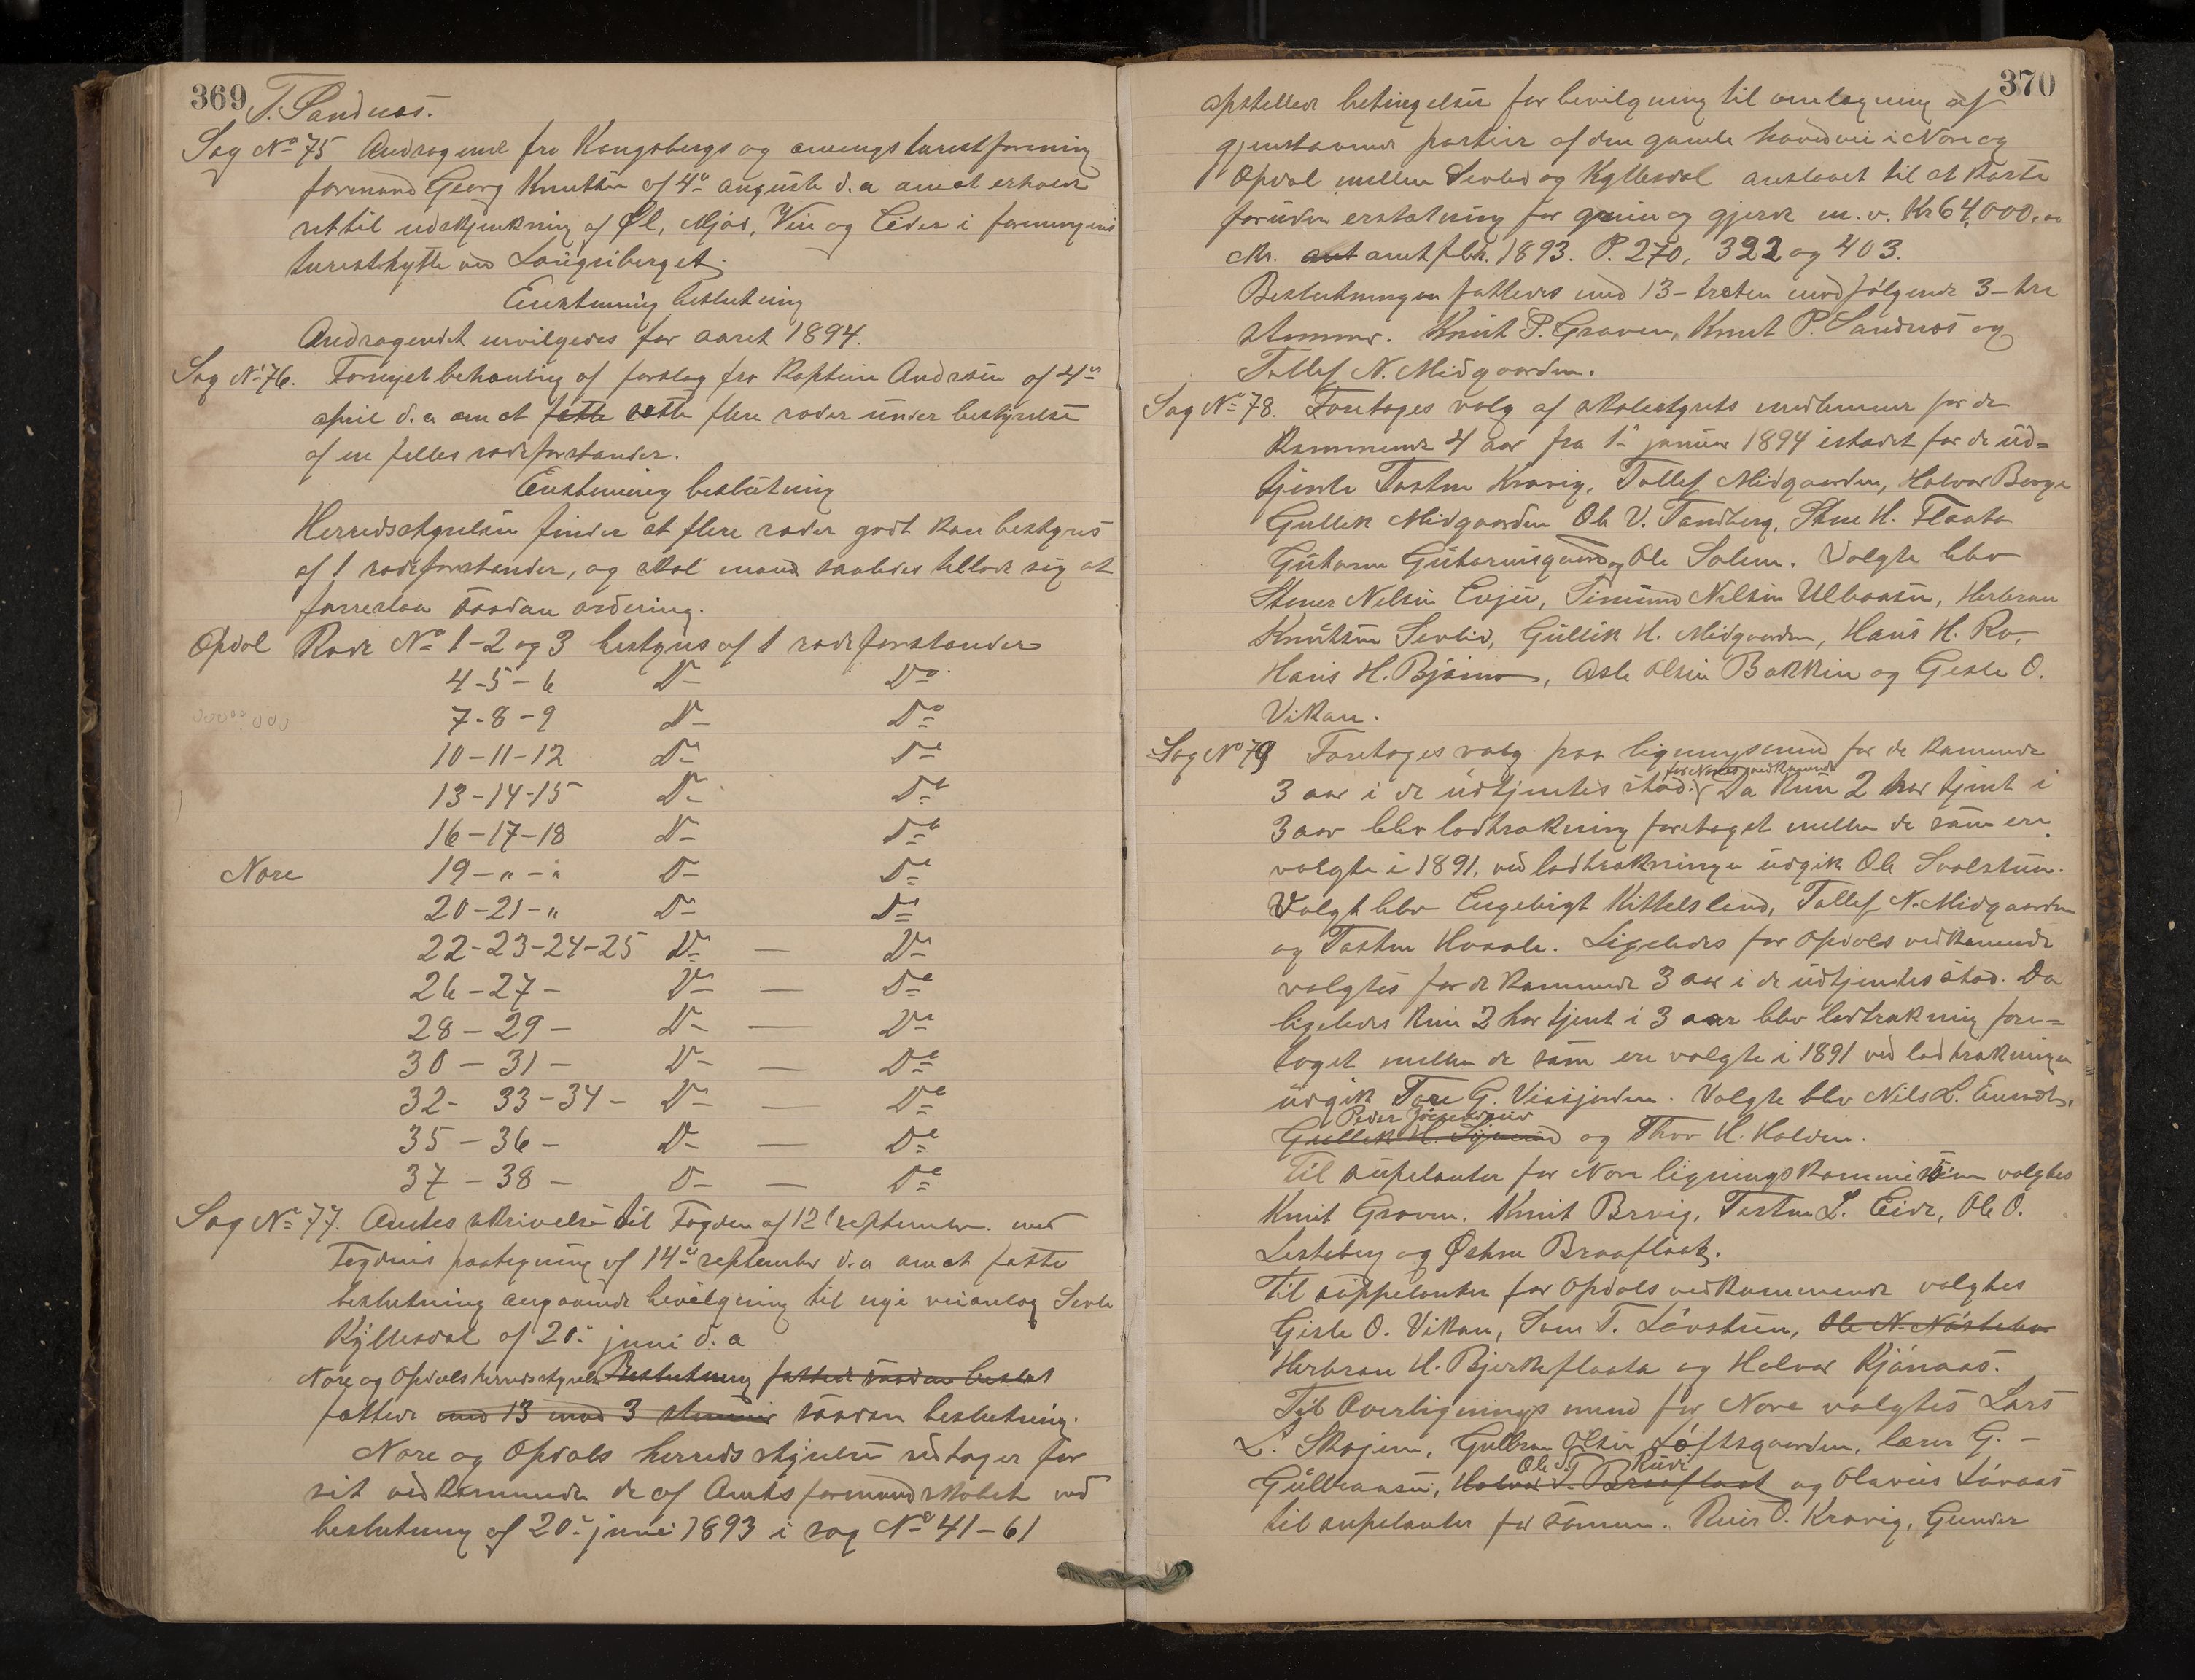 369
T. Sandnæs.
Sag No 75 Andragende fra Kongsbergs og omegns turistforening
formand Georg Knutsen af 4de august d.a om at erholde
ret til udskjenkning af Øl, Mjød, Vin og Cider i foreningens
turisthytte ved
Enstemmig beslutning
Andragendet invilgedes for aaret 1894.
Sag No 76. Fornyet behanling af forslag fra Kaptein Andresen af 4de
april d.a om at fette sette flere roder under bestyrelse
af en felles rodeforstander.
Enstemmig beslutning
Herredsstyrelsen finder at flere roder godt kan bestyres
af 1 rodeforstander, og skal mand saaledes tillade sig at
forreslaa saadan ordening.
Opdal Rode No 1-2 og 3 bestyres af 1 rodeforstander
4-5-6 Do Do
7-8-9 Do Do
10-11-12 Do Do
13-14-15 Do Do
16-17-18 Do Do
Nore 19-"-" Do Do
20-21-" Do Do
22-23-24-25 Do — Do
26-27- Do — Do
28-29- Do — Do
30-31- Do — Do
32- 33-34- Do — Do
35-36- Do — Do
37-38- Do — Do
Sag No 77. Amtes skrivelse til Fogden af 12 september med
Fogdens paategning af 14de september d.a om at fatte
beslutning angaaende bevilgning til nye veianleg Sevle
Kyllesdal af 20de juni d.a
Nore og Opdals herredsstyrelse Beslutning fattede saadan beslut
fattede med 13 mod 3 stemmer saadan beslutning.
Nore og Opdals herredsstyrelse vedtager for
sit vedkommende de af Amtsformandskabet ved
beslutning af 20de juni 1893 i sag No 41-61
370
opstellede betingelser for bevilgning til omlegning af
gjenstaaende partier af den gamle hovedvei i Nore og
Opdal mellem Sevled og Kyllesdal anslaaet til at koste
foruden erstatning for grunn og gjerde m.v. Kr 64,000,00
ckr. amt amtsfbh. 1893. P. 270, 322 og 403.
Beslutningen fattedes med 13-tretten mod følgende 3-tre
stemmer. Knut P. Graven, Knut P. Sandnæs og
Tollef N. Midgaarden.
Sag No 78. Foretages valg af skolestyrets medlemmer for de
kommende 4 aar fra 1te januar 1894 istedet for de ud=
tjente Tosten Kravig, Tollef Midgaarden, Halvor Berge
Gullik Midgaarden Ole V. Tandberg, Sten H. Flaata
Gutorm Gutormsgaard og Ole Solem. Valgte blev
Stener Nelsen Evjen, Simund Nilsen Ulbaasen, Herbran
Knutsen Sevlid, Gullik H. Midgaarden, Hans H. Ro,
Hans H. Bjørnø, Asle Olsen Bakken og Gisle O.
Vikan.
Sag No 79 Foretages valg paa ligningsmend for de kommende
for Nores vedkommende
3 aar i de udtjentes sted. Da kun 2 har tjent i
3 aar blev lodtrakning foretaget mellem de som ere
valgte i 1891, ved lodtrakningen udgik Ole Svalstuen.
Valgt blev Engebrigt Kittelsland, Tollef N. Midgaarden
og Tosten Hvaale. Ligeledes for Opdals vedkommende
valgtes for de kommende 3 aar i de udtjentes sted. Da
ligeledes kun 2 har tjent i 3 aar blev lodtrakning fore=
taget mellem de som ere valgte i 1891 ved lodtrakningen
udgik Tore G. Vissjorden. Valgte blev Nils L.
Peder
Gullik H. og Thov H. Halden.
Til supelanter for Nore ligningskommission valgtes
Knut Graven, Knut Brevig, Tosten L. Eide, Ole O.
Lesteberg og Østen Braaflaat.
Til suppelanter for Opdals vedkommende valgtes
Gisle O. Vikan, Tom T. Løvstuen, Ole N. Nørstebø
Herbran H. Bjerkeflaata og Halvor Kjønaas.
Til Overligningsmend for Nore valgtes Lars
L. Skojen, Gulbran Olsen Løftsgaarden, lærer G. -
Ole T. Rudi
Gulbransen, Halvor T. Braaflaat og Olavus Løvaas
til supelanter for samme. Knut O. Kravig, Gunder